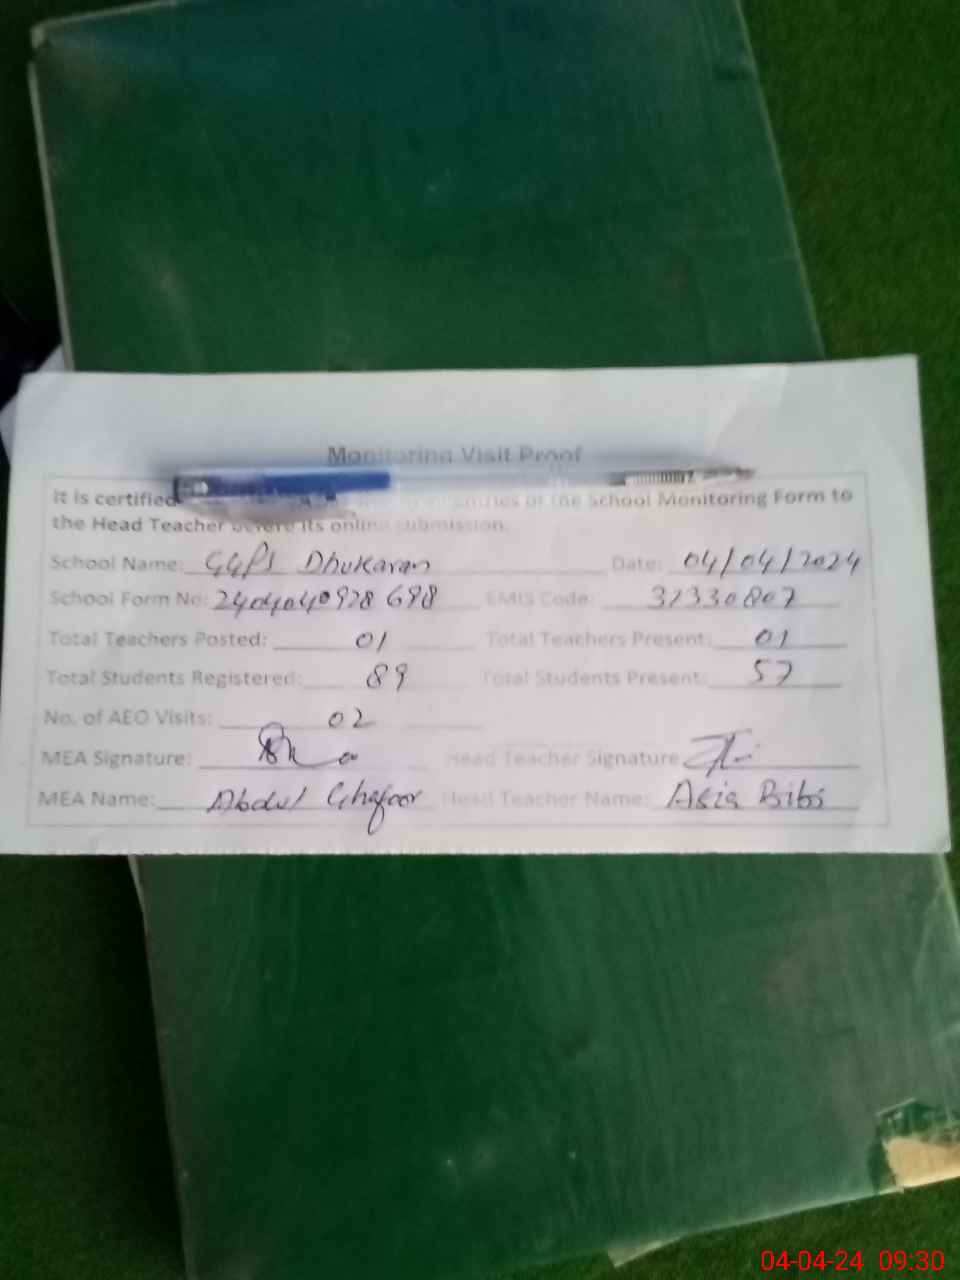 Monitoring Visit Proof
It is certified entries of the School Monitoring Form to
the Head Teacher before its online submission.
School Name: GGPS Dhukaran Date: 04/04/2024
School Form No: 2404040928698 EMIS Code: 32330807
Total Teachers Posted: 01 Total Teachers Present: 01
Total Students Registered: 89 Total Students Present: 57
No. of AEO Visits: 02
MEA Signature: Head Teacher Signature
MEA Name: Abdul Ghafoor Head Teacher Name: Asia Bibi
04-04-24 09:30